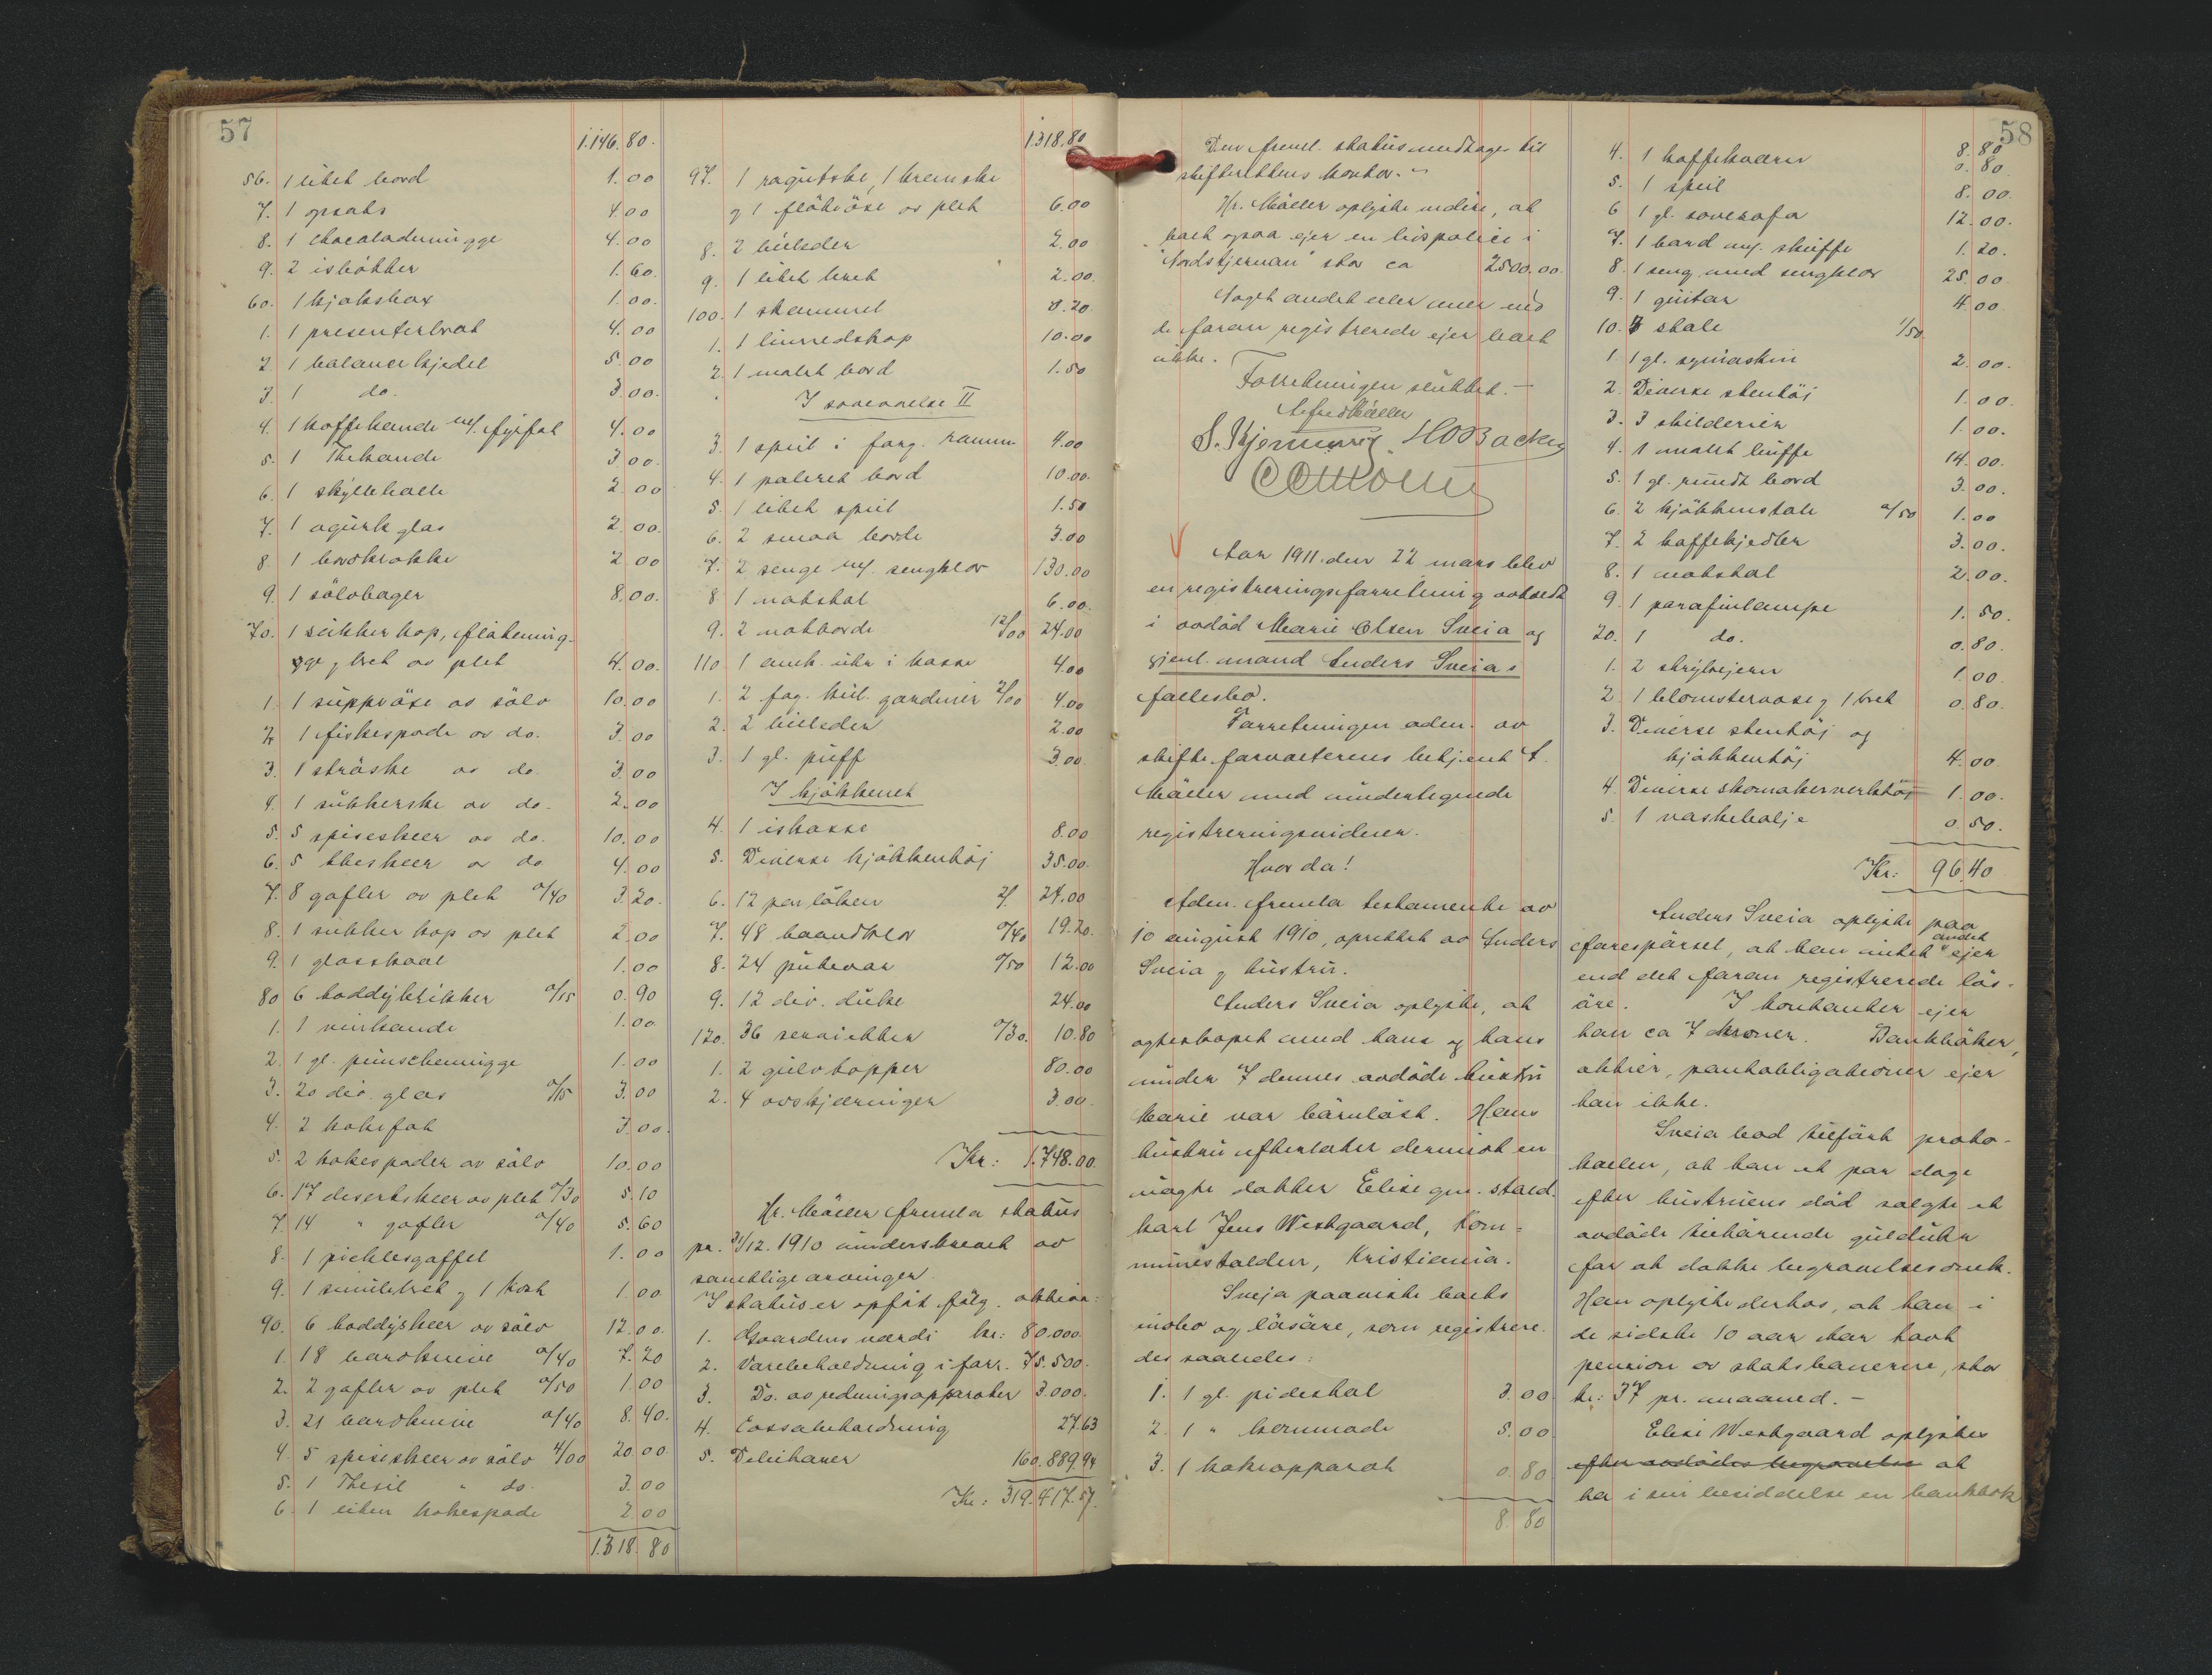 57
1.146.80.
56. 1 litet bord 1.00
7. 1 opsats 4.00
8. 1 chocolademugge 4.00
9. 2 isbøtter 1.60.
60. 1 kjøksbox 1.00.
1. 1 presenterbrat 4.00
2. 1 balance kjedel 5.00
3. 1 do. 3.00.
4. 1 kaffekande m/. fyrfat 4.00
5. 1 Thekande 3.00.
6. 1 skyllebolle 2.00
7. 1 agurkglas 2.00.
8. 1 bordkrakke 2.00
9. 1 sølvbager 8.00.
70. 1 sukker kop, fløtemug-
ge, bret av plet 4.00.
1. 1 suppeøse av sølv 10.00
2. 1 fiskespade av do. 3.00
3. 1 strøske av do. 3.00
4. 1 sukkerske av do. 2.00
5. 5 spiseskeer av do. 10.00
6. 5 theskeer av do 4.00
7. 8 gafler av plet a/40 3.20.
8. 1 sukker kop av plet 2.00
9. 1 glasskaal 1.00
80 6 toddyklikker a/15 0.90
1. 1 vinkande 1.00.
2. 1 gl. punschemugge 1.00
3. 20 div. glas a/15 3.00
4. 2 kakefat 3.00.
5. 2 kakespader av sølv 10.00
6. 17 desertskeer av plet a/30 5.10
7 14 " gafler a/40 5.60
8. 1 picklesgaffel 1.00
9. 1 smulebret og 1 kost 1.00
90. 6 toddyskeer av sølv 12.00.
1. 18 bordknive a/40 7.20
2. 2 gafler av plet a/50 1.00
3. 21 bordknive a/40 8.40.
4. 5 spiseskeer av sølv 4/00 20.00.
5. 1 Thesil " do. 3.00
6. 1 liten kakespade 2.00
1.318.80
1318.80
97. 1 ragutske, 1 kremske
og 1 fløteøse av plet 6.00
8. 2 billeder 2.00
9. 1 litet bret 2.00.
100. 1 skammel 0.20.
1. 1 linnedskap 10.00
2. 1 malet bord 1.50
I soveværelse II
3. 1 speil i forg. ramme 4.00
4. 1 poleret bord 10.00.
5. 1 litet speil 1.50
6. 2 smaa borde 3.00
7. 2 senge m/. sengklær 130.00
8. 1 natskal 6.00.
9. 2 natborde 12/00 24.00
110 1 amk. uhr i kasse 4.00
1. 2 fag. hul. gardiner 2/00 4.00
2. 2 billeder 2.00
3. 1 gl. puff 3.00
I kjøkkenet
4. 1 iskasse 8.00
5. Diverse kjøkkentøj 35.00.
6. 12 par laken 2/. 24.00
7. 48 haandklær a/40 19.20.
8. 24 putevar a/50 12.00
9. 12 div. duke 24.00
120. 36 servietter a/30. 10.80
1. 2 gulvtæpper 80.00
2. 4 avskjæringer 3.00.
Kr: 1.748.00.
Hr. Møller fremla status
pr. 31/12. 1910 underskrevet av
samtlige arvinger.
I status er opført følg. aktiva:
1. Gaardens værdi kr: 80.000.
2. Varebeholdning i forr. 75.500.
3. Do. av redningsapparater 3.000.
4. Cassabeholdning 27.63
5. Debitorer 160.889.94
Kr: 319.417.57.
58
Den freml. status medtages til
skifterettens kontor. -
Hr. Møller oplyste videre, at
boet ogsaa ejer en livspolice i
"Nordstjernan" stor ca 2500.00.
Noget andet eller mer end
de foran registrerede ejer boet
ikke.
Forretningen sluttet. -
Alfred Møller
H.O. Backe
Aar 1911. den 22 mars blev
en registreringsforretning avholdt
i avdød Marie Olsen Sveia og
gjenl. mand Anders Sveias
fællesbo.
Forretningen adm. av
skifteforvalterens betjent A.
Møller med undertegnede
registreringsvidner.
Hvorda!
Adm. fremla testamente av
10 august 1910, oprettet av Anders
Sveia og hustru.
Anders Sveia oplyste, at
egteskapet med hans og hans
under 7 dennes avdøde hustru
Marie var barnløst. Hans
hustru efterlater derimot en
uægte datter Elise gm. stald-
karl Jens Westgaard, Kom=
munestalden, Kristiania.
Sveja paaviste boets
indbo og løsøre, som registrere-
des saaledes:
1. 1 gl. pidestal 3.00
2. 1 " kommode 5.00
3. 1 kokeapparat 0.80
8.80
8.80
4. 1 kaffekværn 0.80
5. 1 speil 8.00.
6 1 gl. sovesofa 12.00.
7. 1 bord m/. skuffe 1.20.
8. 1 seng med sengklær 25.00
9. 1 guitar 4.00
10. 3 stole 1/50
1. 1 gl. symaskin 2.00.
2. Diverse stentøj 1.00.
3. 3 skilderier 1.00.
4. 1 malet buffe 14.00.
5. 1 gl. rundt bord 3.00.
6. 2 kjøkkenstole a/50 1.00
7. 2 kaffekjedler 3.00.
8. 1 matskal 2.00.
9. 1 parafinlampe 1.50.
20. 1 do. 0.80.
1. 2 strykejern 1.00.
2. 1 blomstervase og 1 bret 0.80.
3. Diverse stentøj og
kjøkkentøj 4.00.
4. Diverse skomakerverktøi 1.00.
5. 1 vaskebalje 0.50.
Kr: 96.40
Anders Sveia oplyste paa
forespørsel, at han intet andet ejer
end det foran registrerede løs-
øre. I kontanter ejer
han ca 7 kroner. Bankbøker,
aktier, pantobligationer ejer
han ikke.
Sveia bad tilført proto-
kollen, at han et par dage
efter hustruens død solgte et
avdøde tilhørende gulduhr
for at dække begravelsesomk.
Han oplyste derhos, at han i
de sidste 10 aar har havt
pension av statsbanerne, stor
kr: 37 pr. maaned. -
Elise Westgaard oplyster
efter avdødes begravelse at
ha i sin besiddelse en bankbok